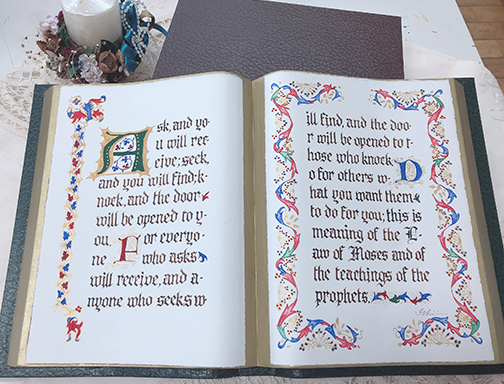 Ask, and yo
u will rec
eive; seek,
and you will find; k
nock, and the door
will be opened to y
ou. For everyo
ne who asks
will receive, and a-
nyone who seeks w
ill find, and the doo
r will be opened to t
hose who knock.
Do for others w-
hat you want them
to do for you; this is
meaning of the L-
aw of Moses and of
the teachings of the
prophets.